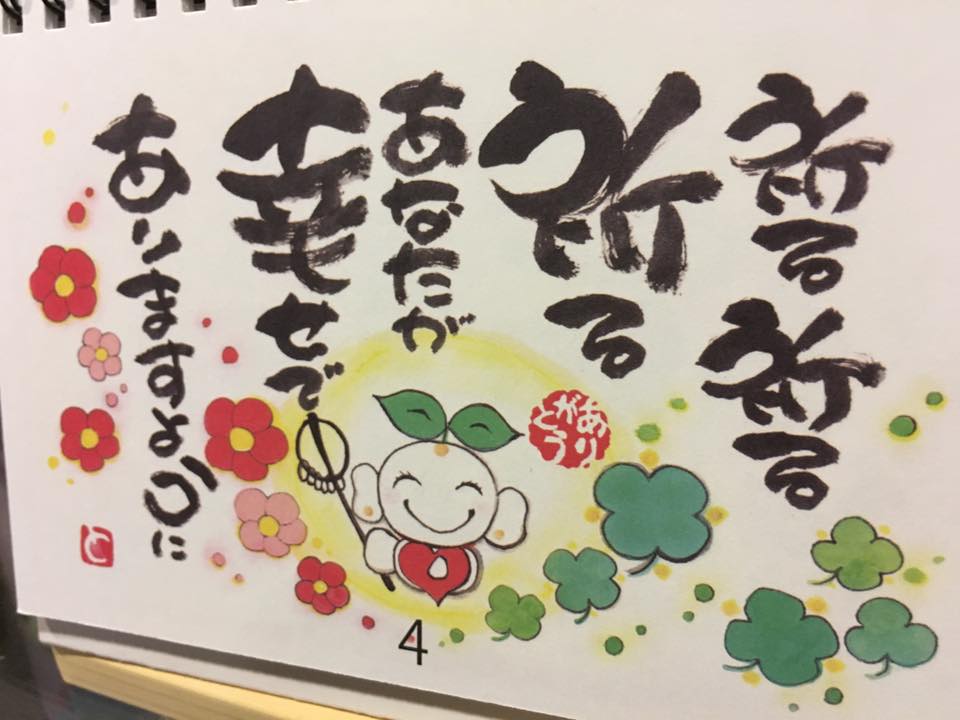 祈る祈る
祈る
あなたが
幸せで
ありますように
ありがとう
と
4